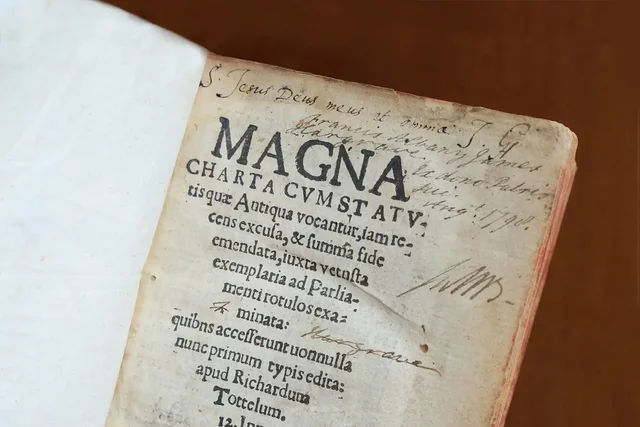 S. Jesus Deus meus et omnia J G
Francis
Hargrave James
Augt. 1798.
MAGNA
CHARTA CVM STATV-
tis quæ Antiqua vocantur, iam re-
cens excusa, & summa fide
emendata, iuxta vetusta
exemplaria ad Parlia-
menti rotulos exa-
minata:
quibns accesserunt uonnulla
nunc primum typis edita:
apud Richardum
Tottelum.
12.